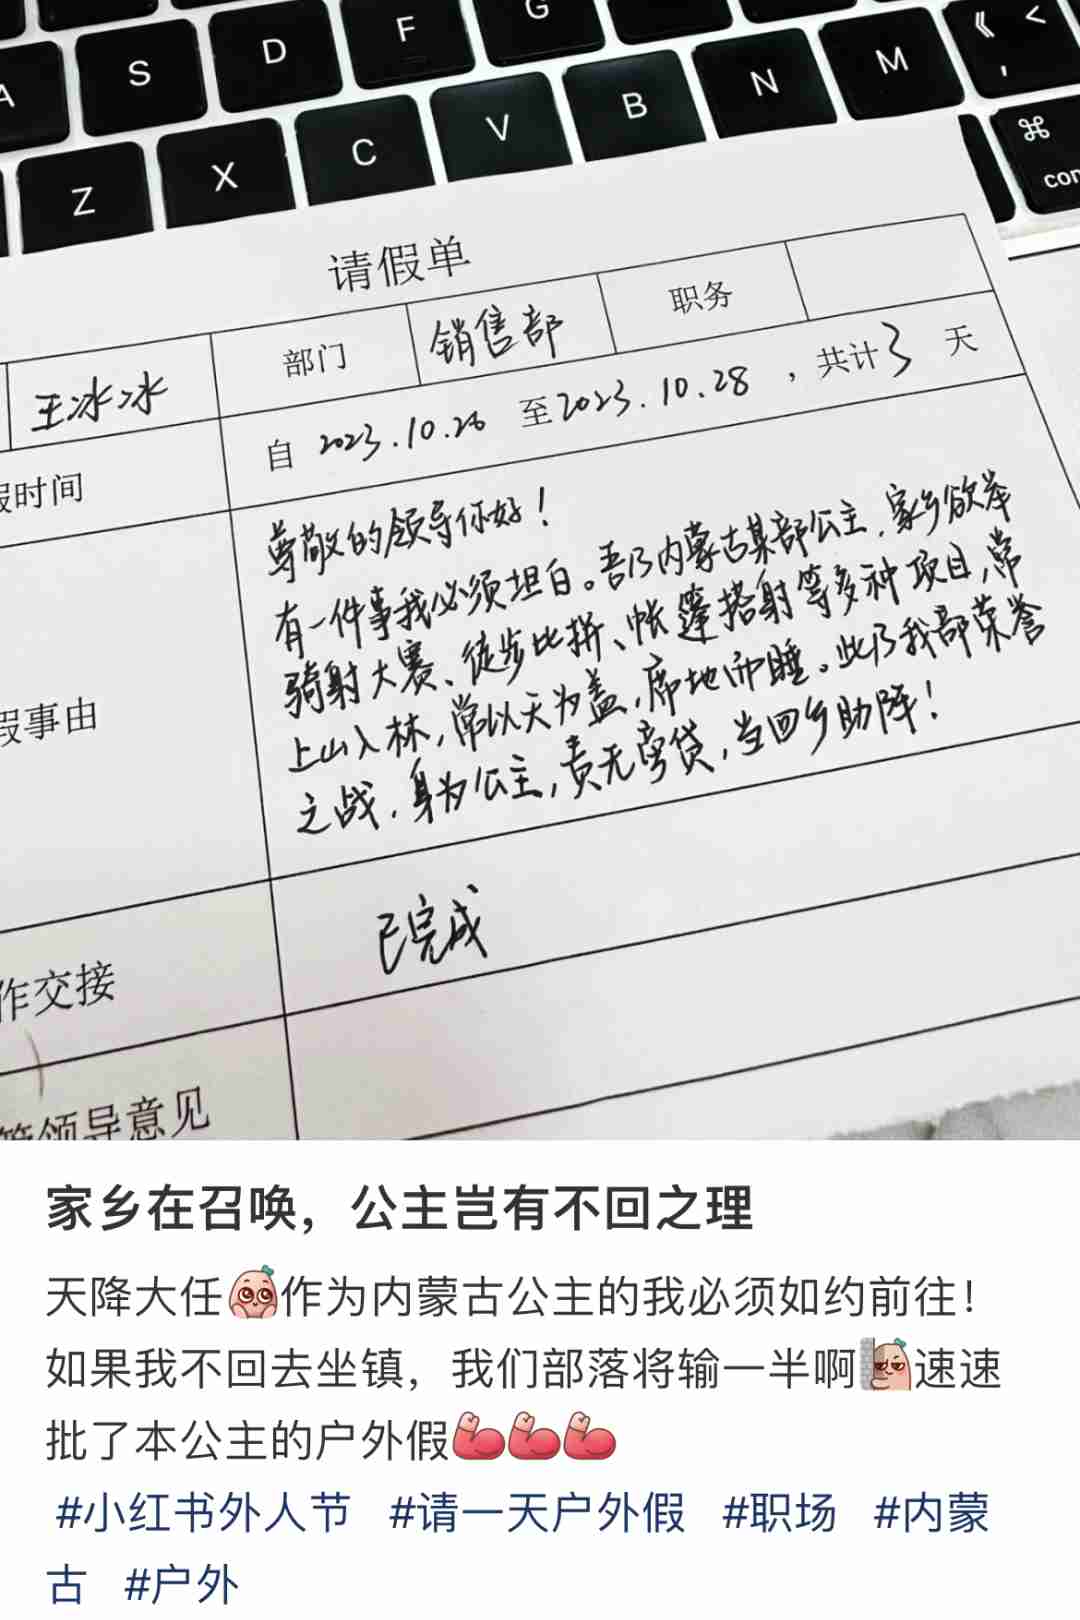 G
A S D F
《 <
,
Z X C V B N M
⌘
请假单
王冰冰 部门 销售部 职务
假时间 自 2023.10.26 至2023.10.28 ，共计3 天
尊敬的领导你好！
有一件事我必须坦白。吾乃内蒙古某部公主，家乡欲举
骑射大赛、徒步比拼、帐篷搭射等多种项目，常
上山入林，常以天为盖，席地而睡。此乃我部荣誉
之战，身为公主，责无旁贷，当回乡助阵！
假事由
作交接 已完成
领导意见
家乡在召唤，公主岂有不回之理
天降大任作为内蒙古公主的我必须如约前往！
如果我不回去坐镇，我们部落将输一半啊速速
批了本公主的户外假
#小红书外人节 #请一天户外假 #职场 #内蒙
古 #户外